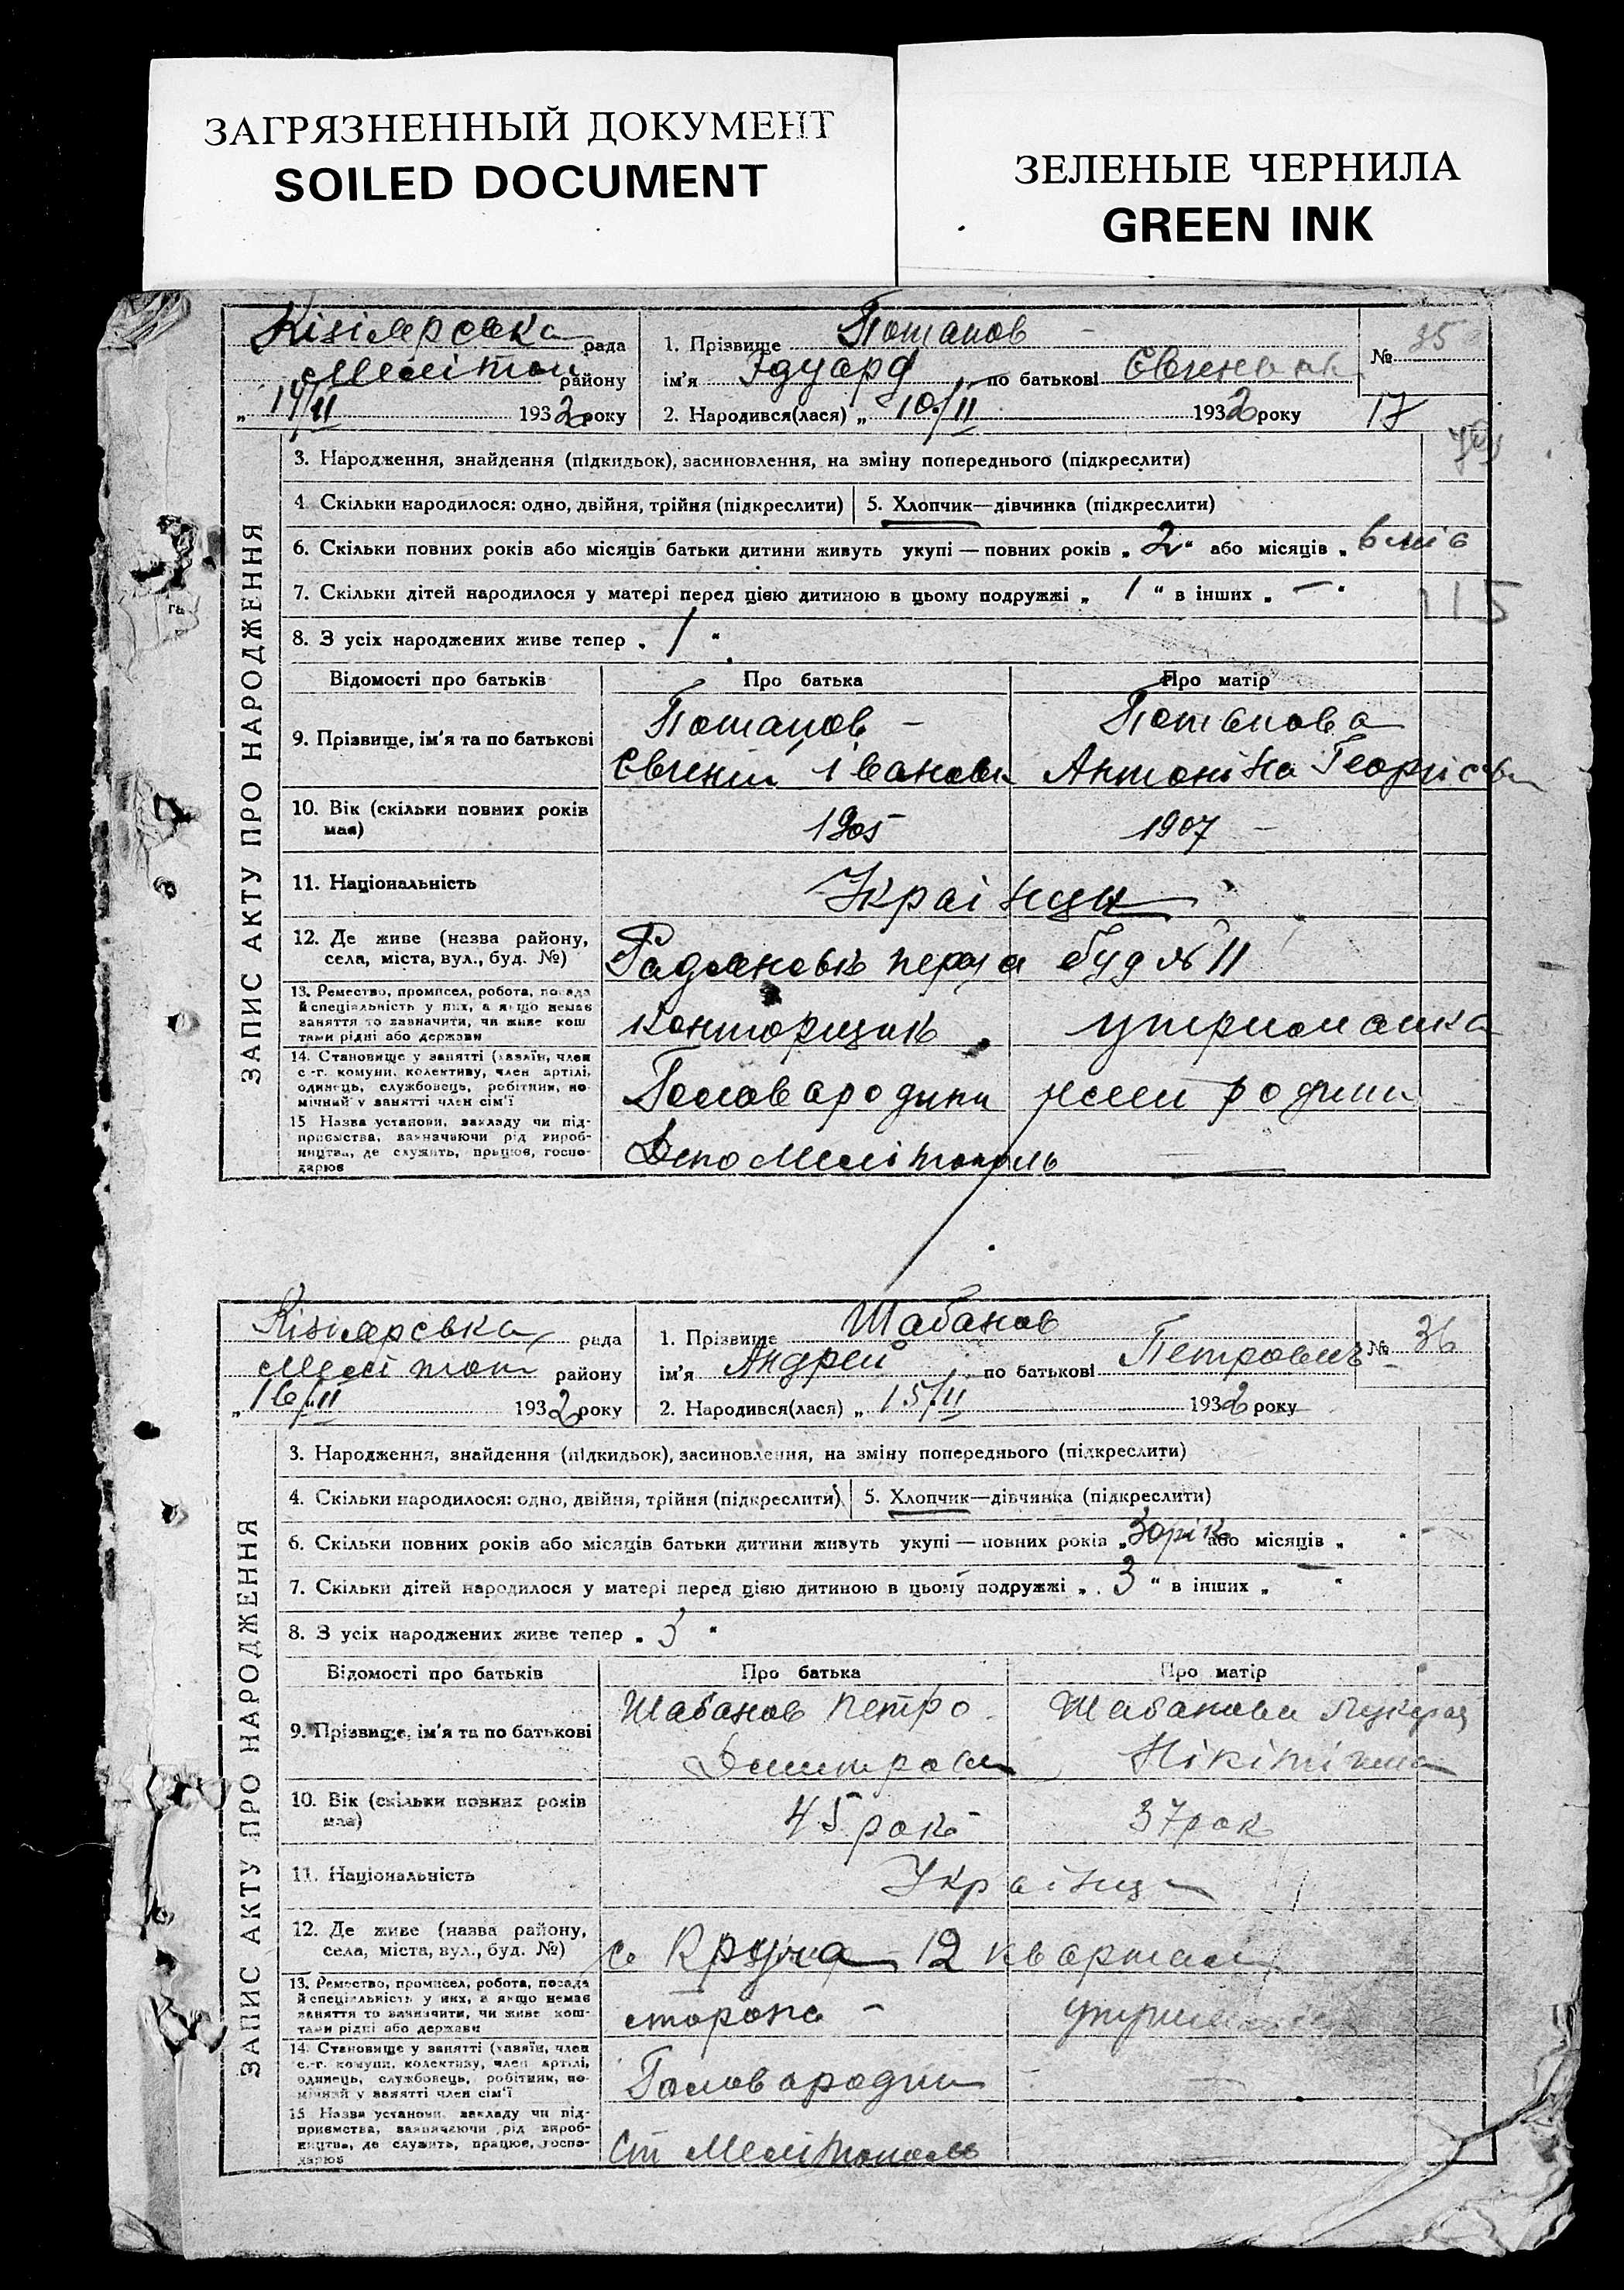 ЗАГРЯЗНЕННЫЙ ДОКУМЕНТ
SOILED DOCUMENT
ЗЕЛЕНЫЕ ЧЕРНИЛА
GREEN INK
Кізіярська рада
Мелітоп району
„ 14/II 1932 року
1. Прізвище Потапов
ім'я Эдуард по батькові Євгенов
2. Народився(лася) „ 10/II 1932 року
№ 35
17
3. Народження, знайдення (підкидьок), засиновлення, на зміну попереднього (підкреслити)
4. Скільки народилося: одно, двійня, трійня (підкреслити) 5. Хлопчик—дівчинка (підкреслити)
6. Скільки повних років або місяців батьки дитини живуть укупі — повних років „ 2 " або місяців „ 6 міс
7. Скільки дітей народилося у матері перед цією дитиною в цьому подружжі „ 1 " в інших „ — "
115
8. З усіх народжених живе тепер „ 1 "
ЗАПИС АКТУ ПРО НАРОДЖЕННЯ
Відомості про батьків Про батька Про матір
9. Прізвище, ім'я та по батькові
Потапов – Потапова
Євгений Іванови Антоніна Георгієв
10. Вік (скільки повних років має) 1905 1907 –
11. Національність Українци
12. Де живе (назва району, села, міста, вул., буд. №) Радяновь буд № 11
13. Ремество, промисел, робота, посада й спеціяльність у них, а якщо немає заняття то зазначити, чи живе коштами рідні або держави
конторщик утриманка
14. Становище у занятті (хазяїн, член с.-г. комуни, колективу, член артілі, одинець, службовець, робітник, помічний у занятті член сім'ї
Голова родини член родини
15 Назва установи, закладу чи підприємства, зазначаючи рід виробництва, де служить, працює, господарює
Депо Мелітополь —
Кізіярська рада
Меліtоп району
„ 16/II 1932 року
1. Прізвище Шабанов
ім'я Андрей по батькові Петрович
2. Народився(лася) „ 15/II 1932 року
№ 36
3. Народження, знайдення (підкидьок), засиновлення, на зміну попереднього (підкреслити)
4. Скільки народилося: одно, двійня, трійня (підкреслити) 5. Хлопчик—дівчинка (підкреслити)
6. Скільки повних років або місяців батьки дитини живуть укупі — повних років „ або місяців „ "
7. Скільки дітей народилося у матері перед цією дитиною в цьому подружжі „ 3 " в інших „ — "
8. З усіх народжених живе тепер „ 3 "
ЗАПИС АКТУ ПРО НАРОДЖЕННЯ
Відомості про батьків Про батька Про матір
9. Прізвище, ім'я та по батькові
Шабанов Петро Шабанова
Дмитрови Нікітічна
10. Вік (скільки повних років має) 45 рок 37 рок
11. Національність Українци
12. Де живе (назва району, села, міста, вул., буд. №) с. Круча 12 квартал
13. Ремество, промисел, робота, посада й спеціяльність у них, а якщо немає заняття то зазначити, чи живе коштами рідні або держави
сторож – утриманка
14. Становище у занятті (хазяїн, член с.-г. комуни, колективу, член артілі, одинець, службовець, робітник, помічний у занятті член сім'ї
Голова родини —
15 Назва установи, закладу чи підприємства, зазначаючи рід виробництва, де служить, працює, господарює
Ст Мелітополь